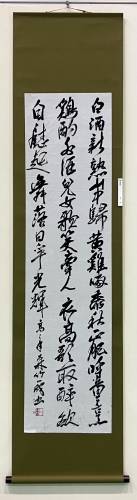 白酒新熟山中歸黃雞啄黍秋正肥呼童烹
雞酌白酒兒女歌笑牽人衣高歌取醉欲
自慰起舞落日爭光輝